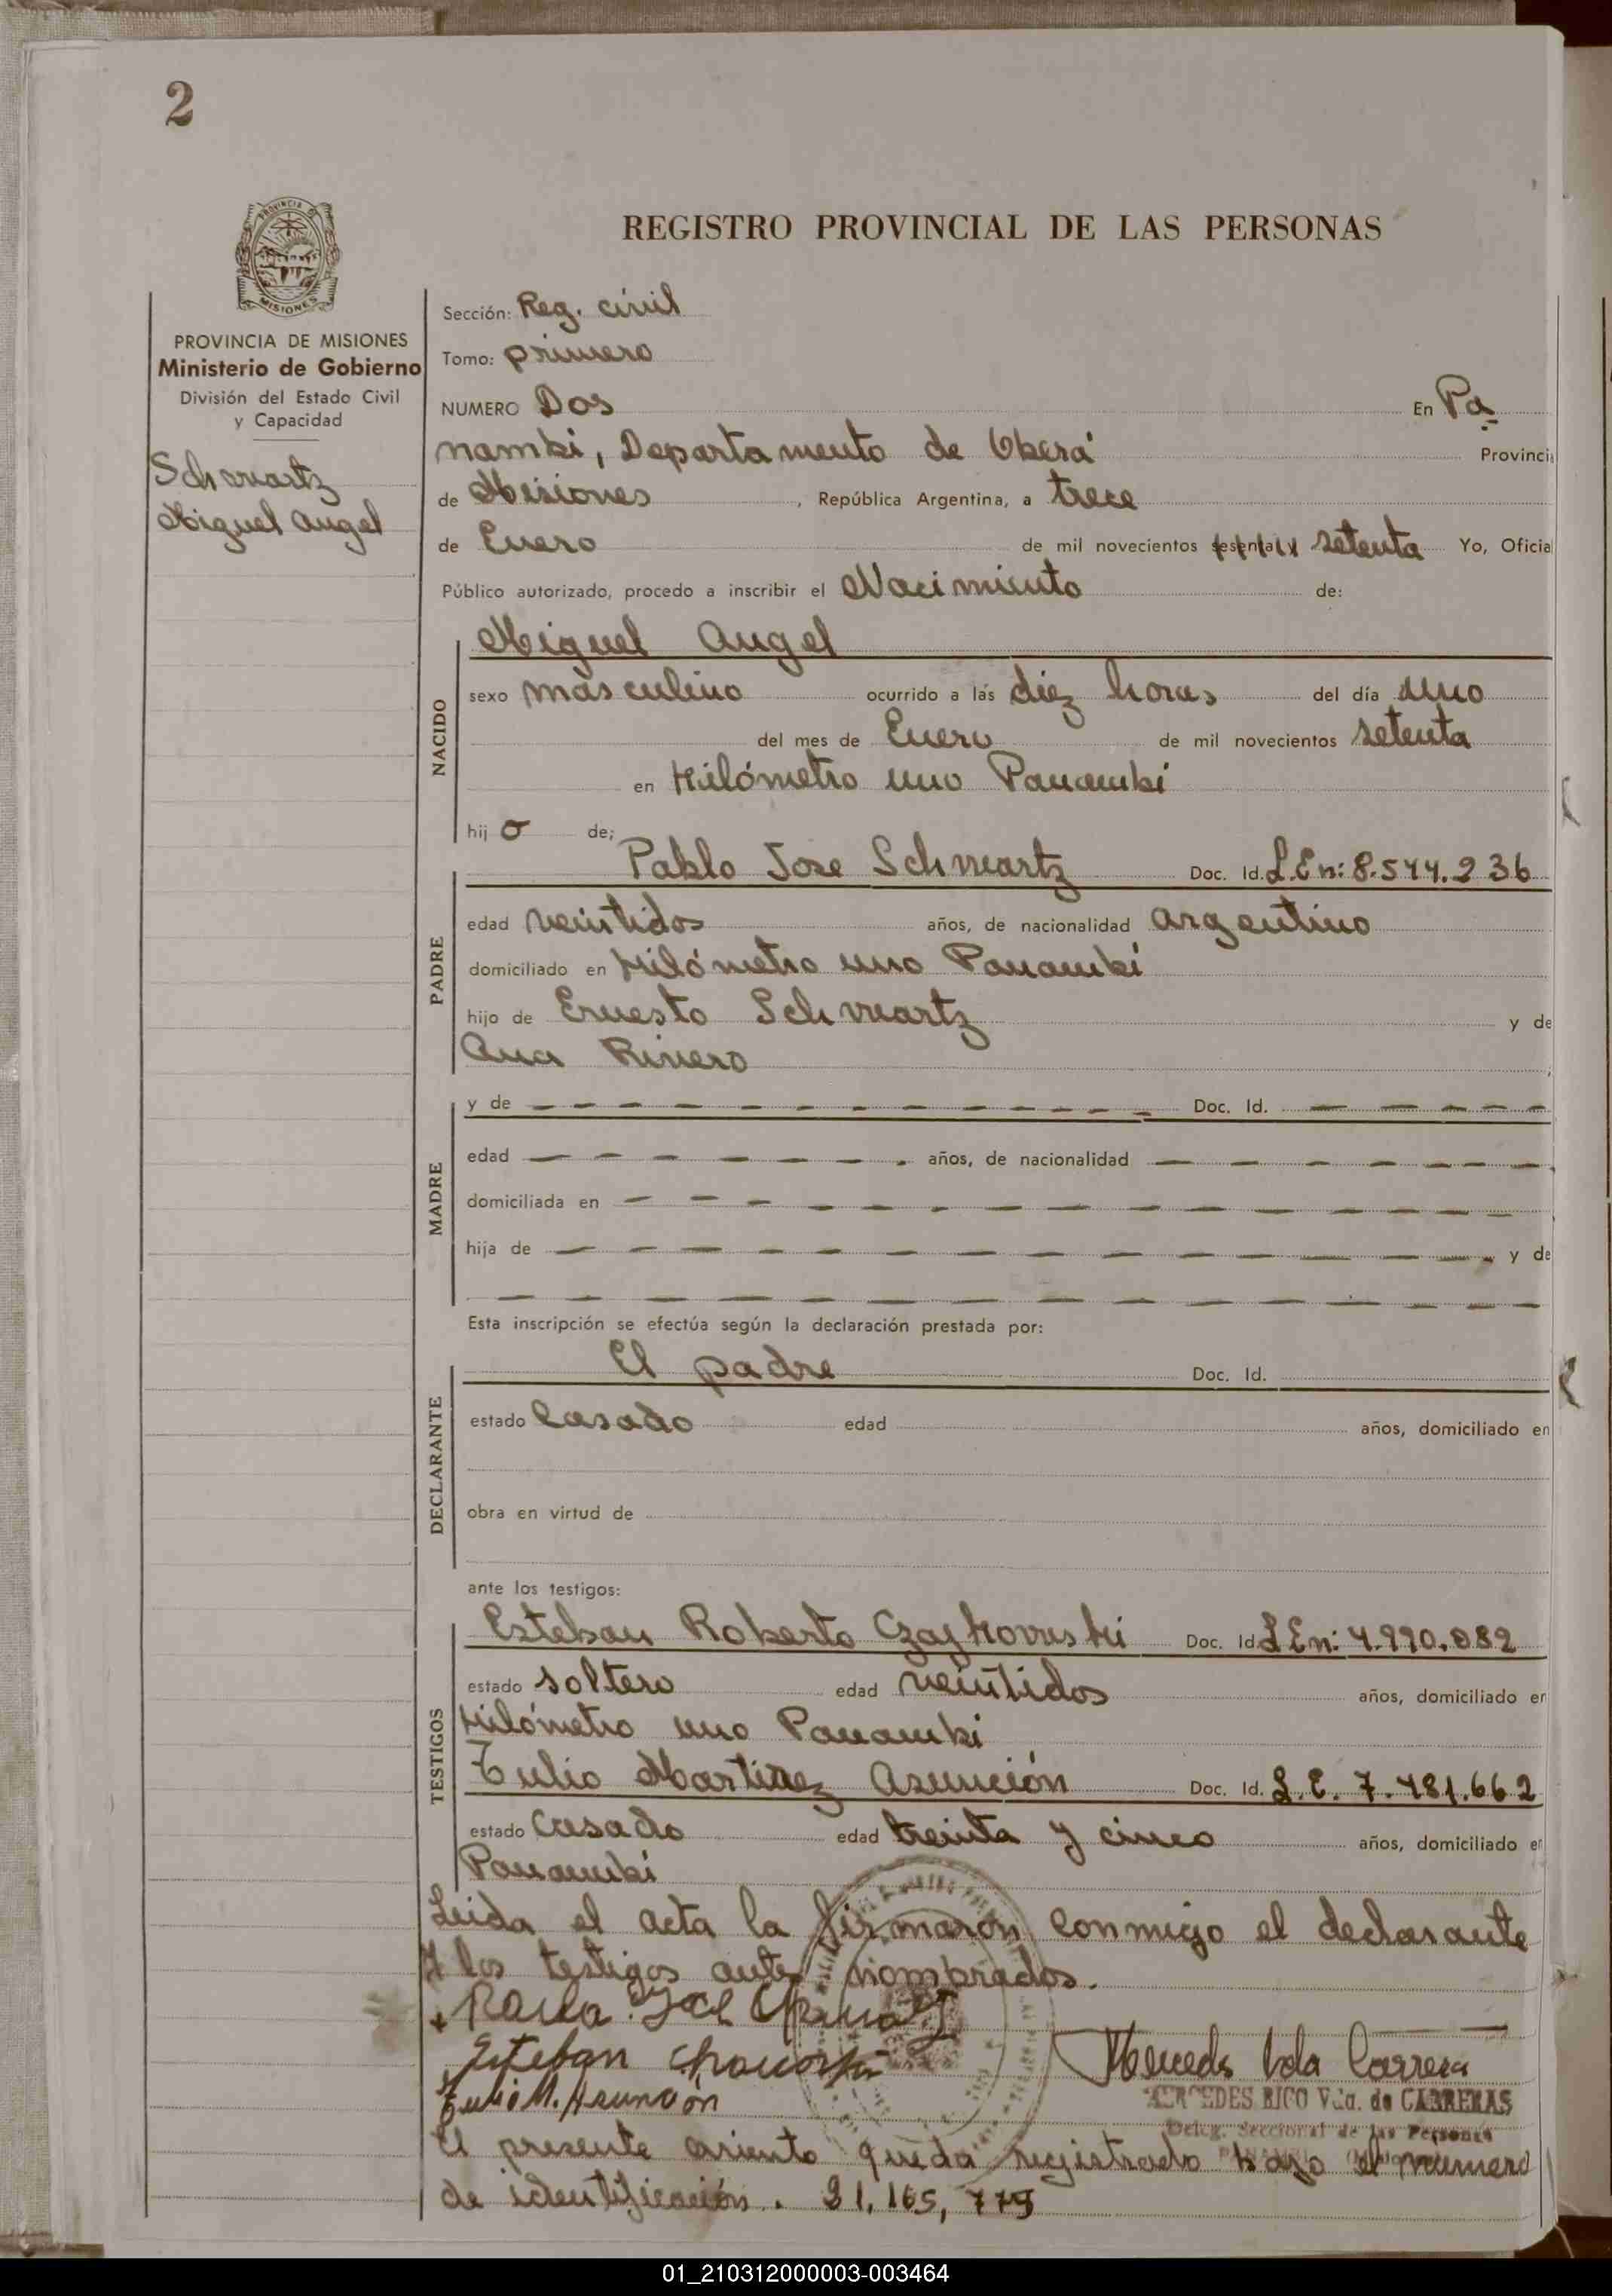 2
REGISTRO PROVINCIAL DE LAS PERSONAS
PROVINCIA DE MISIONES
Ministerio de Gobierno
División del Estado Civil
y Capacidad
Schwartz
Miguel Angel
Sección: Reg. civil
Tomo: primero
NUMERO Dos En Pa
nambi, Departamento de Oberá Provinci
de Misiones, República Argentina, a trece
de Enero de mil novecientos sesenta setenta Yo, Oficia
Público autorizado, procedo a inscribir el Nacimiento de:
NACIDO
Miguel Angel
sexo masculino ocurrido a las diez horas del día uno
del mes de Enero de mil novecientos setenta
en Kilómetro uno Panambí
hijo de;
PADRE
Pablo Jose Schwartz Doc. Id. L.E n: 8.544.236
edad veintidos años, de nacionalidad argentino
domiciliado en Kilómetro uno Panambí
hijo de Ernesto Schwartz y de
Ana Rivero
MADRE
y de — — — Doc. Id. — — —
edad — — — años, de nacionalidad — — —
domiciliada en — — —
hija de — — — y de
— — —
Esta inscripción se efectúa según la declaración prestada por:
DECLARANTE
El padre Doc. Id.
estado Casado edad años, domiciliado en
obra en virtud de
ante los testigos:
TESTIGOS
Esteban Roberto Czajkowski Doc. Id L En: 4.990.082
estado soltero edad veintidos años, domiciliado en
Kilómetro uno Panambi
Tulio Martinez Asunción Doc. Id. L.E. 7.481.662
estado Casado edad treinta y cinco años, domiciliado e
Panambí
Leida el acta la firmaron conmigo el declarante
y los testigos antes nombrados.
Esteban
Tulio M. Asunción
Mercedes Vda Carrera
MERCEDES RICO Vda. de CARRERAS
Deleg. Seccional de las Personas
El presente asiento queda registrado bajo el numero
de identificación. 21.165,779
01_210312000003-003464